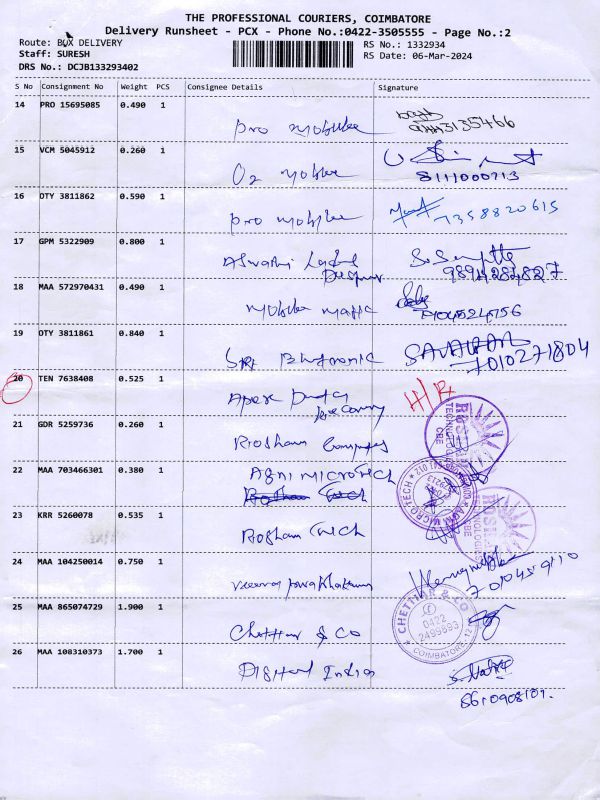 THE PROFESSIONAL COURIERS, COIMBATORE
Delivery Runsheet - PCX - Phone No.:0422-3505555 - Page No.:2
Route: BOX DELIVERY
RS No.: 1332934
Staff: SURESH
RS Date: 06-Mar-2024
DRS No.: DCJB133293402
S No Consignment No Weight PCS Consignee Details Signature
14 PRO 15695085 0.490 1
Pro Mobile
15 VCM 5045912 0.260 1
O2 Mobile
8111000713
16 DTY 3811862 0.590 1
Pro Mobile
7358820615
17 GPM 5322909 0.800 1
Aswathi
9894284827
18 MAA 572970431 0.490 1
Mobile
19 DTY 3811861 0.840 1
Sri
7010271804
20 TEN 7638408 0.525 1
Apex
H/R
21 GDR 5259736 0.260 1
Roshan
ROSHAN TECHNOLOGIES CBE
22 MAA 703466301 0.380 1
Agni Microtech
AGNI MICRO TECH
23 KRR 5260078 0.535 1
Roshan Tech
TECHNOLOGIES CBE
24 MAA 104250014 0.750 1
25 MAA 865074729 1.900 1
Chettiar & Co
CHETTIAR & CO
0422
2499893
COIMBATORE-12
26 MAA 108310373 1.700 1
Digital India
8610908101.